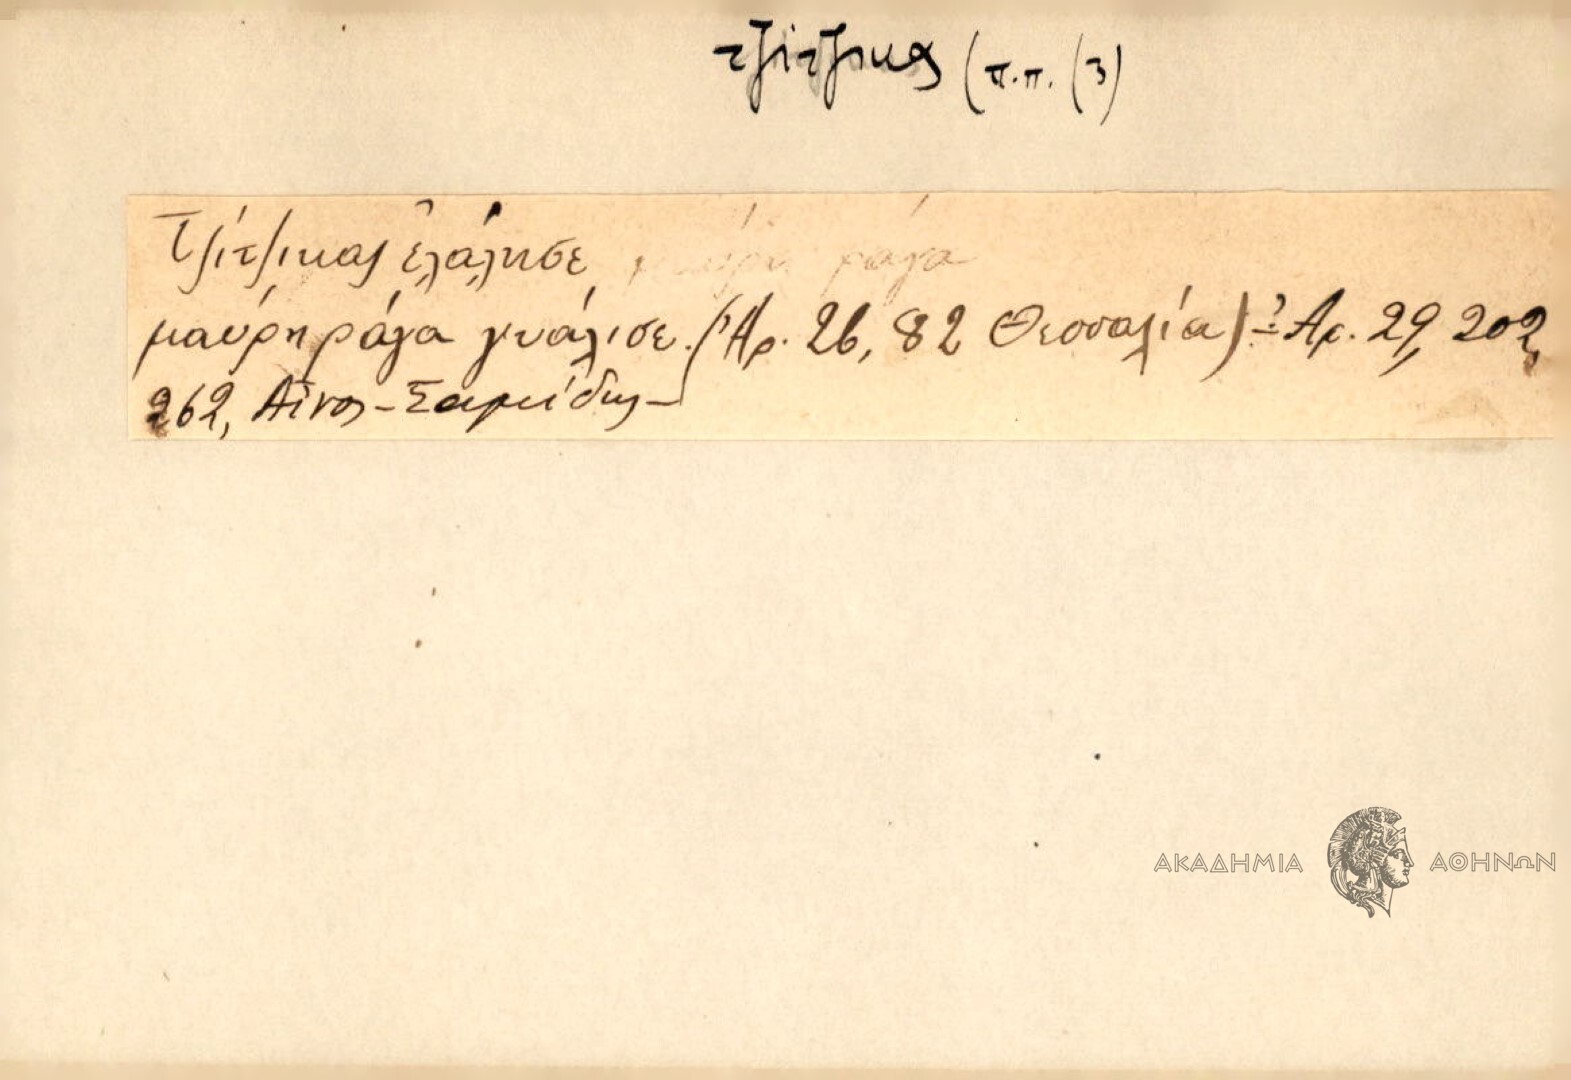 τζίτζικας (π.π. (3)
Τζίτζικας ἐλάλησε μαύρη ράγα
μαύρη ράγα γυάλισε. (Ἀρ. 26, 82 Θεσσαλία) - Ἀρ. 29, 202,
262, Αἶνος - Σαμίδης -
ΑΚΑΔΗΜΙΑ ΑΘΗΝΩΝ